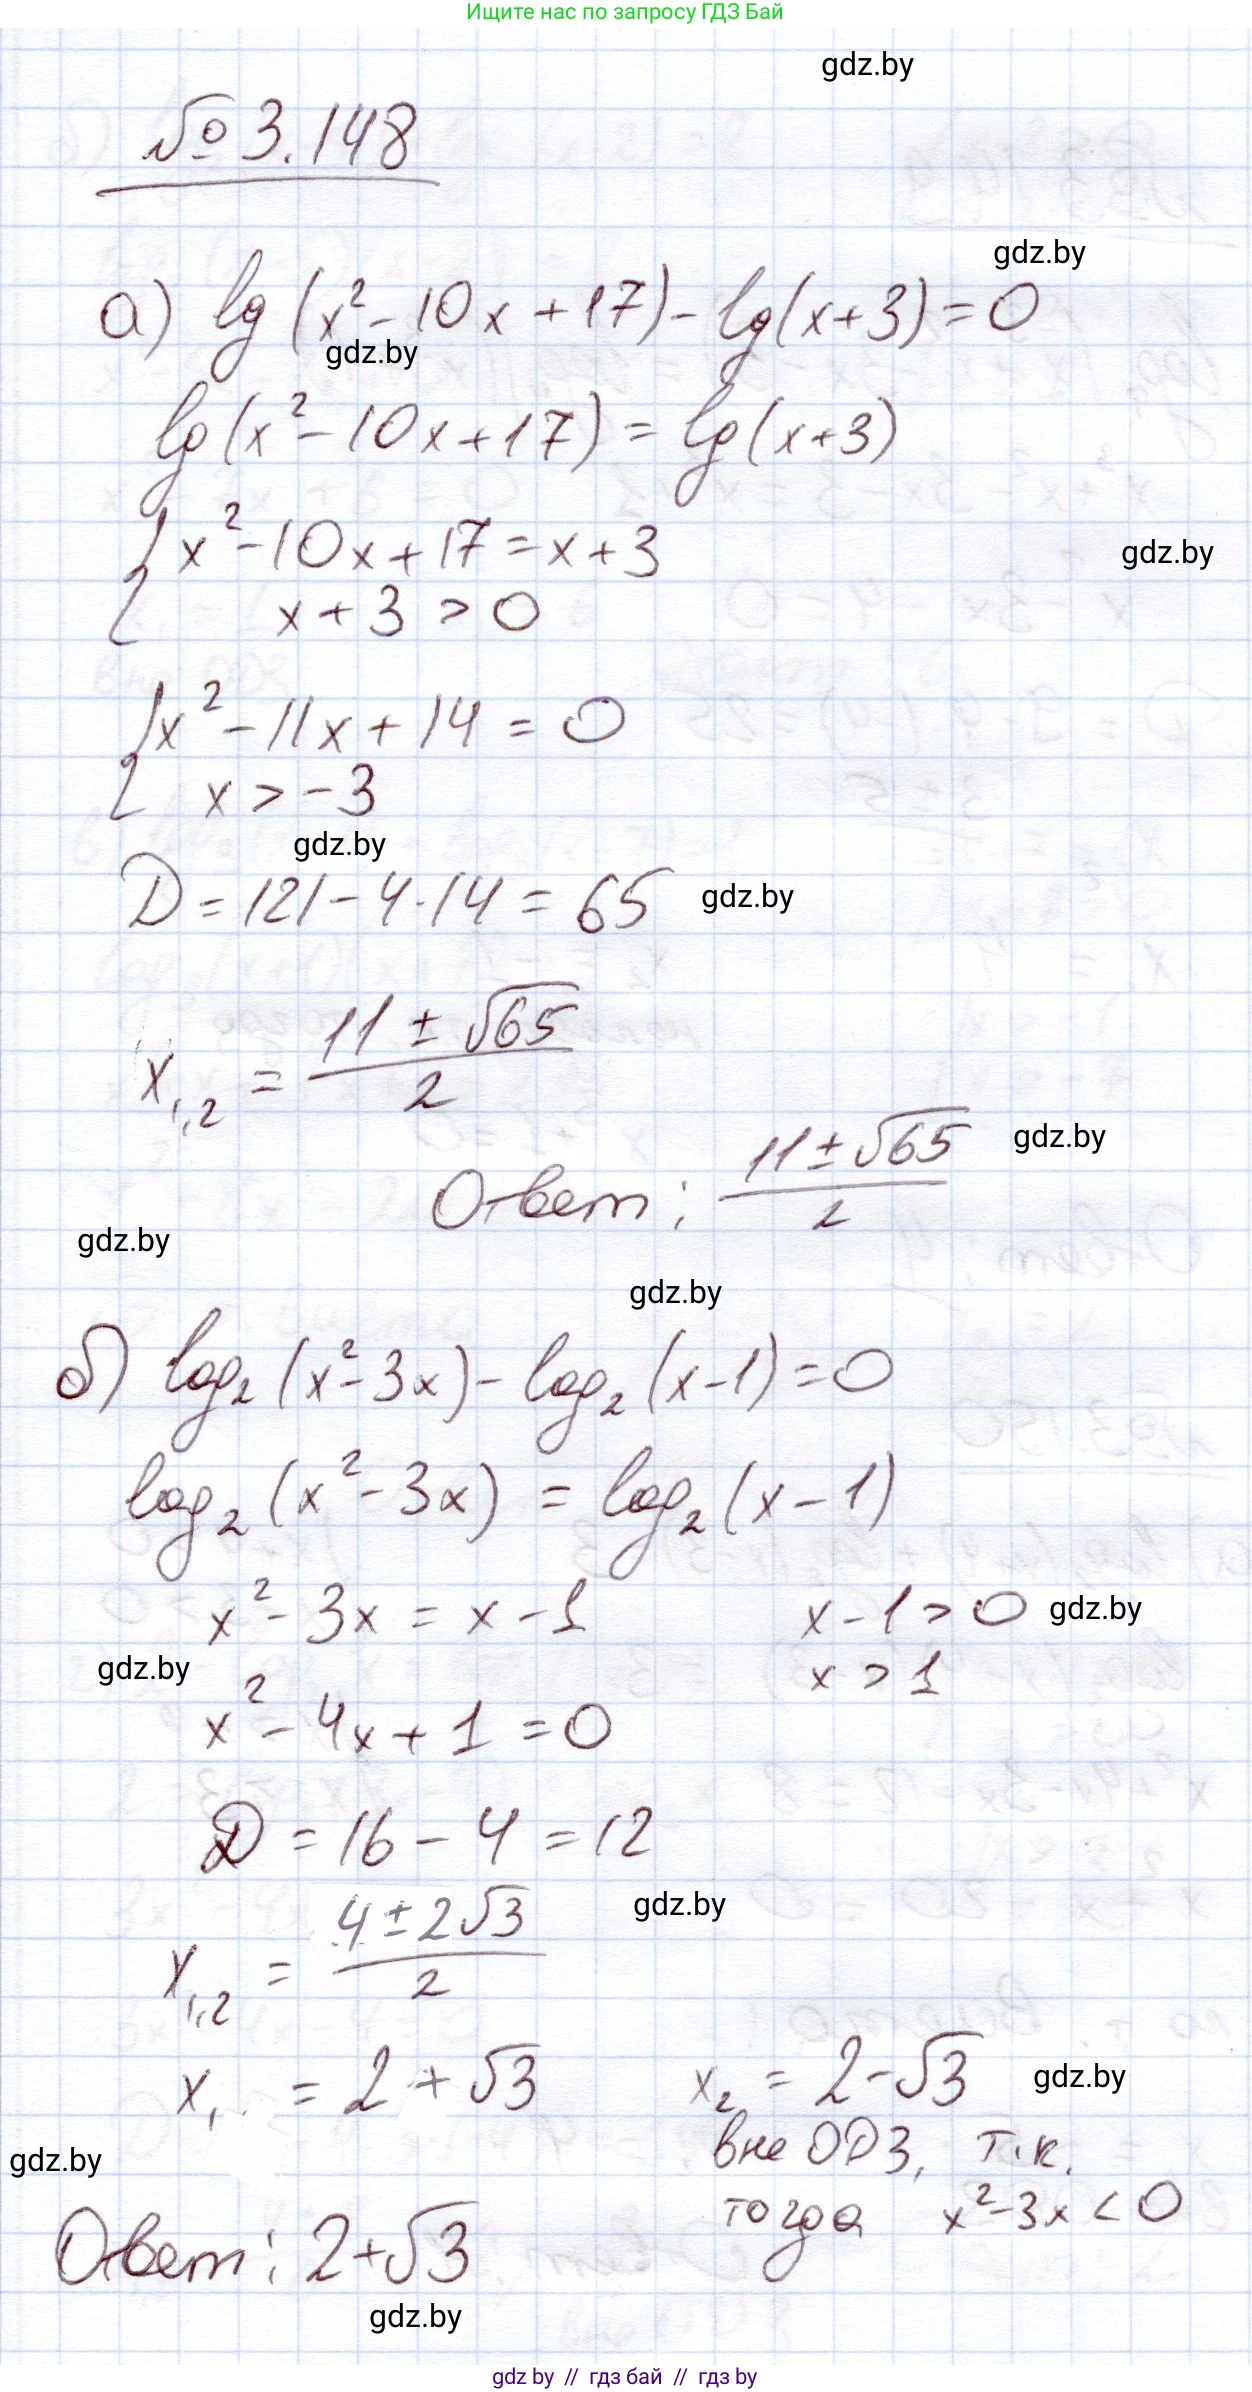 Ищите нас по запросу ГДЗ Бай
gdz.by
№ 3.148
gdz.by
а) lg(x² - 10x + 17) - lg(x+3) = 0
gdz.by
lg(x² - 10x + 17) = lg(x+3)
{ x² - 10x + 17 = x + 3
gdz.by
x + 3 > 0
{ x² - 11x + 14 = 0
x > -3
gdz.by
D = 121 - 4·14 = 65 gdz.by
x₁,₂ = (11 ± √65)/2
Ответ: (11 ± √65)/2 gdz.by
gdz.by
gdz.by
б) log₂(x² - 3x) - log₂(x-1) = 0
log₂(x² - 3x) = log₂(x - 1)
x² - 3x = x - 1 x - 1 > 0 gdz.by
gdz.by x > 1
x² - 4x + 1 = 0
D = 16 - 4 = 12
gdz.by
x₁,₂ = (4 ± 2√3)/2
x₁ = 2 + √3 x₂ = 2 - √3 gdz.by
вне ОДЗ, т.к.
gdz.by
тогда x² - 3x < 0
Ответ: 2 + √3
gdz.by
gdz by // гдз бай // гдз by